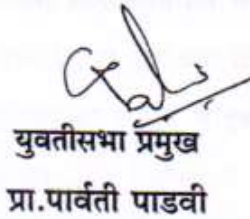 युवतीसभा प्रमुख
प्रा.पार्वती पाडवी